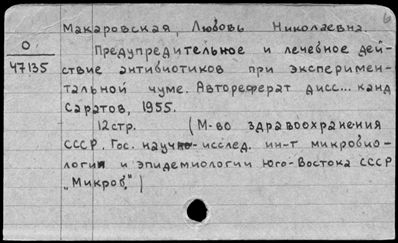 6
Макаровская, Любовь Николаевна.
О
47135
Предупредительное и лечебное дей-
ствие антибиотиков при эксперимен-
тальной чуме. Автореферат дисс... канд
Саратов, 1955.
12стр. (М-во здравоохранения
СССР. Гос. научно-исслед. ин-т микробио-
логии и эпидемиологии Юго-Востока СССР
„Микроб",)